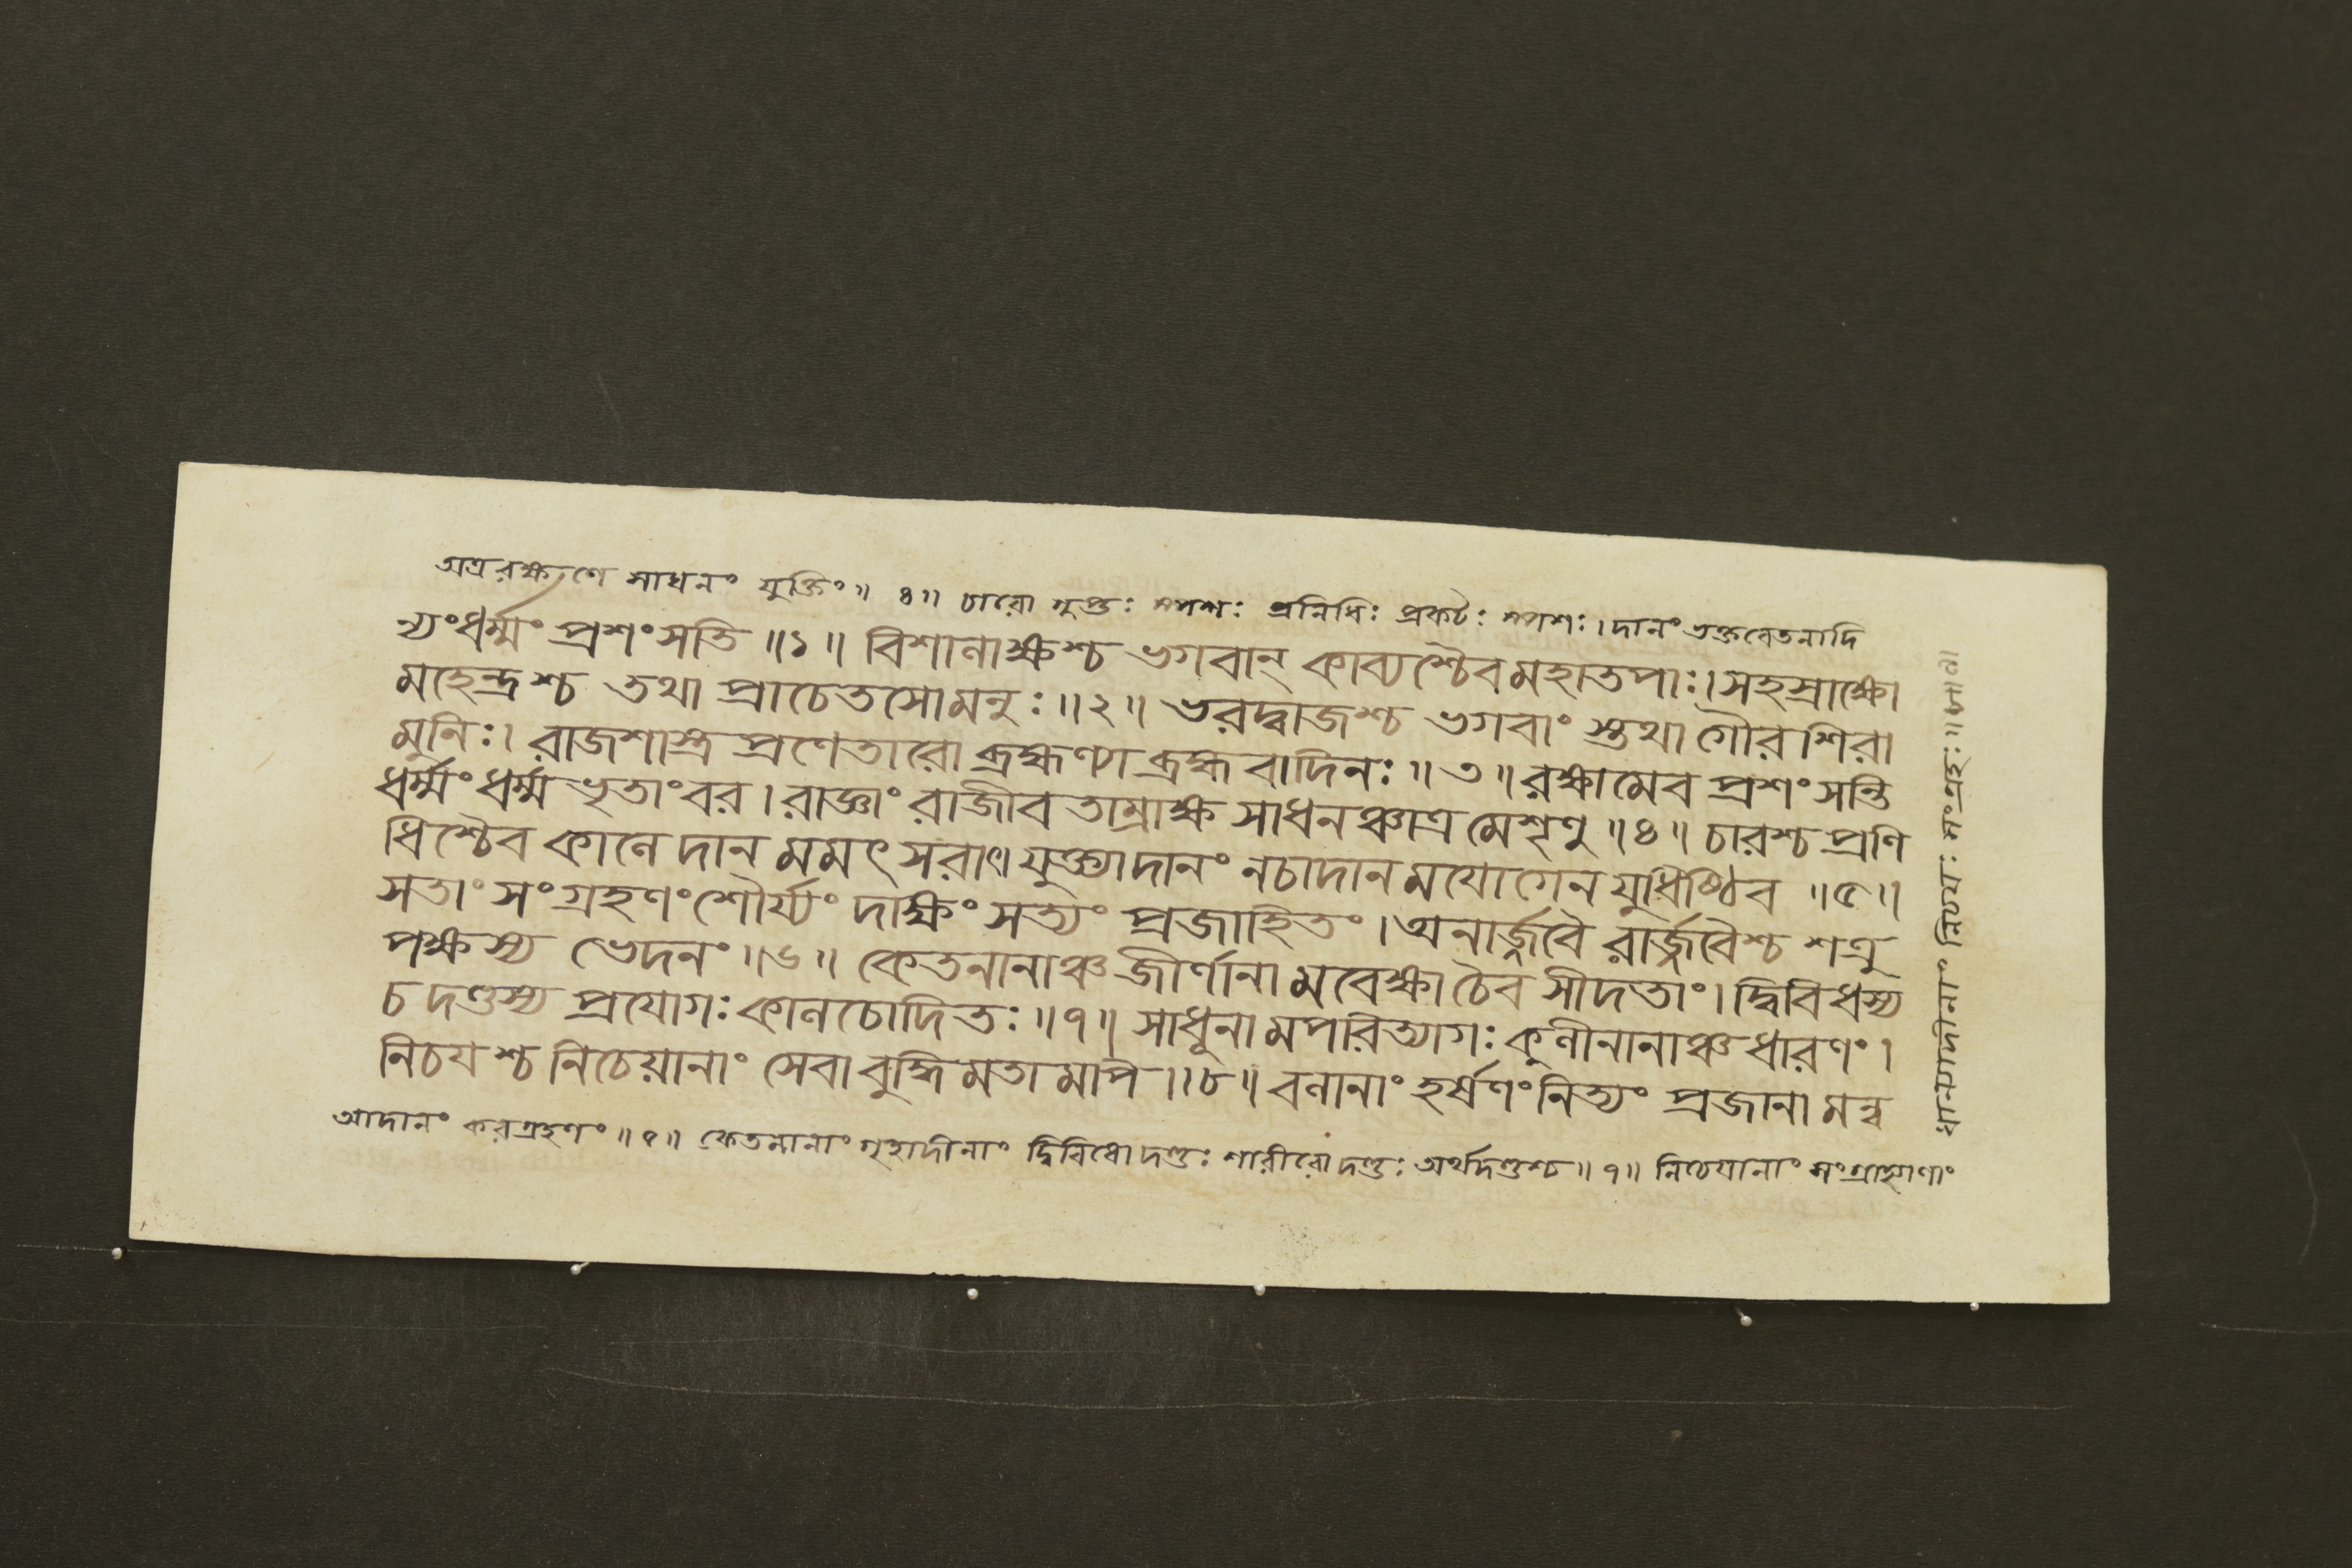 অত্ররক্ষণে সাধনং যুক্তিং॥ ৪॥ চারো গুপ্তঃ স্পশঃ প্রনিধিঃ প্রকটঃ স্পশঃ।দানং ভক্তবেতনাদি
ন্যংধর্ম্মং প্রশংসতি ॥১॥ বিশানাক্ষশ্চ ভগবান্ কাব্যশ্চৈবমহাতপাঃ।সহস্রাক্ষো
মহেন্দ্রশ্চ তথা প্রাচেতসোমনুঃ॥২॥ ভরদ্বাজশ্চ ভগবাং স্তথা গৌরশিরা
মুনিঃ। রাজশাস্ত্র প্রণেতারো ব্রহ্মণ্যা ব্রহ্মবাদিনঃ॥৩॥রক্ষামেব প্রশংসন্তি
ধর্ম্মংধর্ম্মভৃতাংবর।রাজ্ঞাং রাজীবতাম্রাক্ষ সাধনঞ্চাত্রমেশৃণু॥৪॥ চারশ্চপ্রণি
ধিশ্চৈব কালে দানমমৎসরাৎ।যুক্ত্যাদানং নচাদানময়োগেনযুধিষ্ঠিব ॥৫॥
সতাং সংগ্রহণংশৌর্য্যং দাক্ষিং সত্যং প্রজাহিতং।অনার্জ্জবৈ রার্জ্জবৈশ্চ শত্রু
পক্ষস্য ভেদনং॥৬॥ কেতনানাঞ্চ জীর্ণানা মবেক্ষাচৈব সীদতাং।দ্বিবিধস্য
চ দণ্ডস্য প্রযোগঃ কালচোদিতঃ॥৭॥ সাধূনামপরিত্যাগঃ কুলীনানাঞ্চধারণং।
নিচযশ্চ নিচেয়ানাং সেবা বুদ্ধিমতামপি॥৮॥ বলানাং হর্ষণংনিত্যং প্রজানামন্ব
আদানং করগ্রহণং॥৫॥ কেতনানাং গৃহাদীনাং দ্বিবিধো দণ্ডঃ শারীরো দণ্ডঃ অর্থদণ্ডশ্চ॥৭॥ নিচেযানাং সংগ্রাহ্যাণাং
ধান্যাদীনাং নিচযঃ সংগ্রহঃ॥৮॥